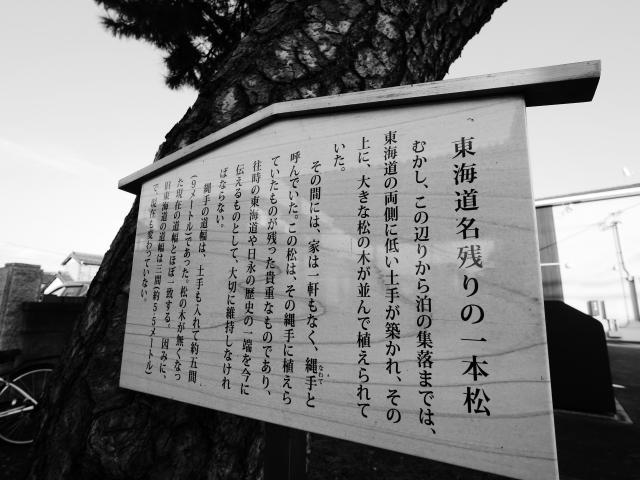 東海道名残りの一本松
むかし、この辺りから泊の集落までは、
東海道の両側に低い土手が築かれ、その
上に、大きな松の木が並んで植えられて
いた。
その間には、家は一軒もなく、縄手と
なわて
呼んでいた。この松は、その縄手に植えら
れていたものが残った貴重なものであり、
往時の東海道や日永の歴史の一端を今に
伝えるものとして、大切に維持しなけれ
ばならない。
縄手の道幅は、土手も入れて約五間
(9メートル)であった。松の木が無くなっ
た現在の道幅とほぼ一致する。因みに、
旧東海道の道幅は三間(約5.5メートル)
で、現在も変わっていない。